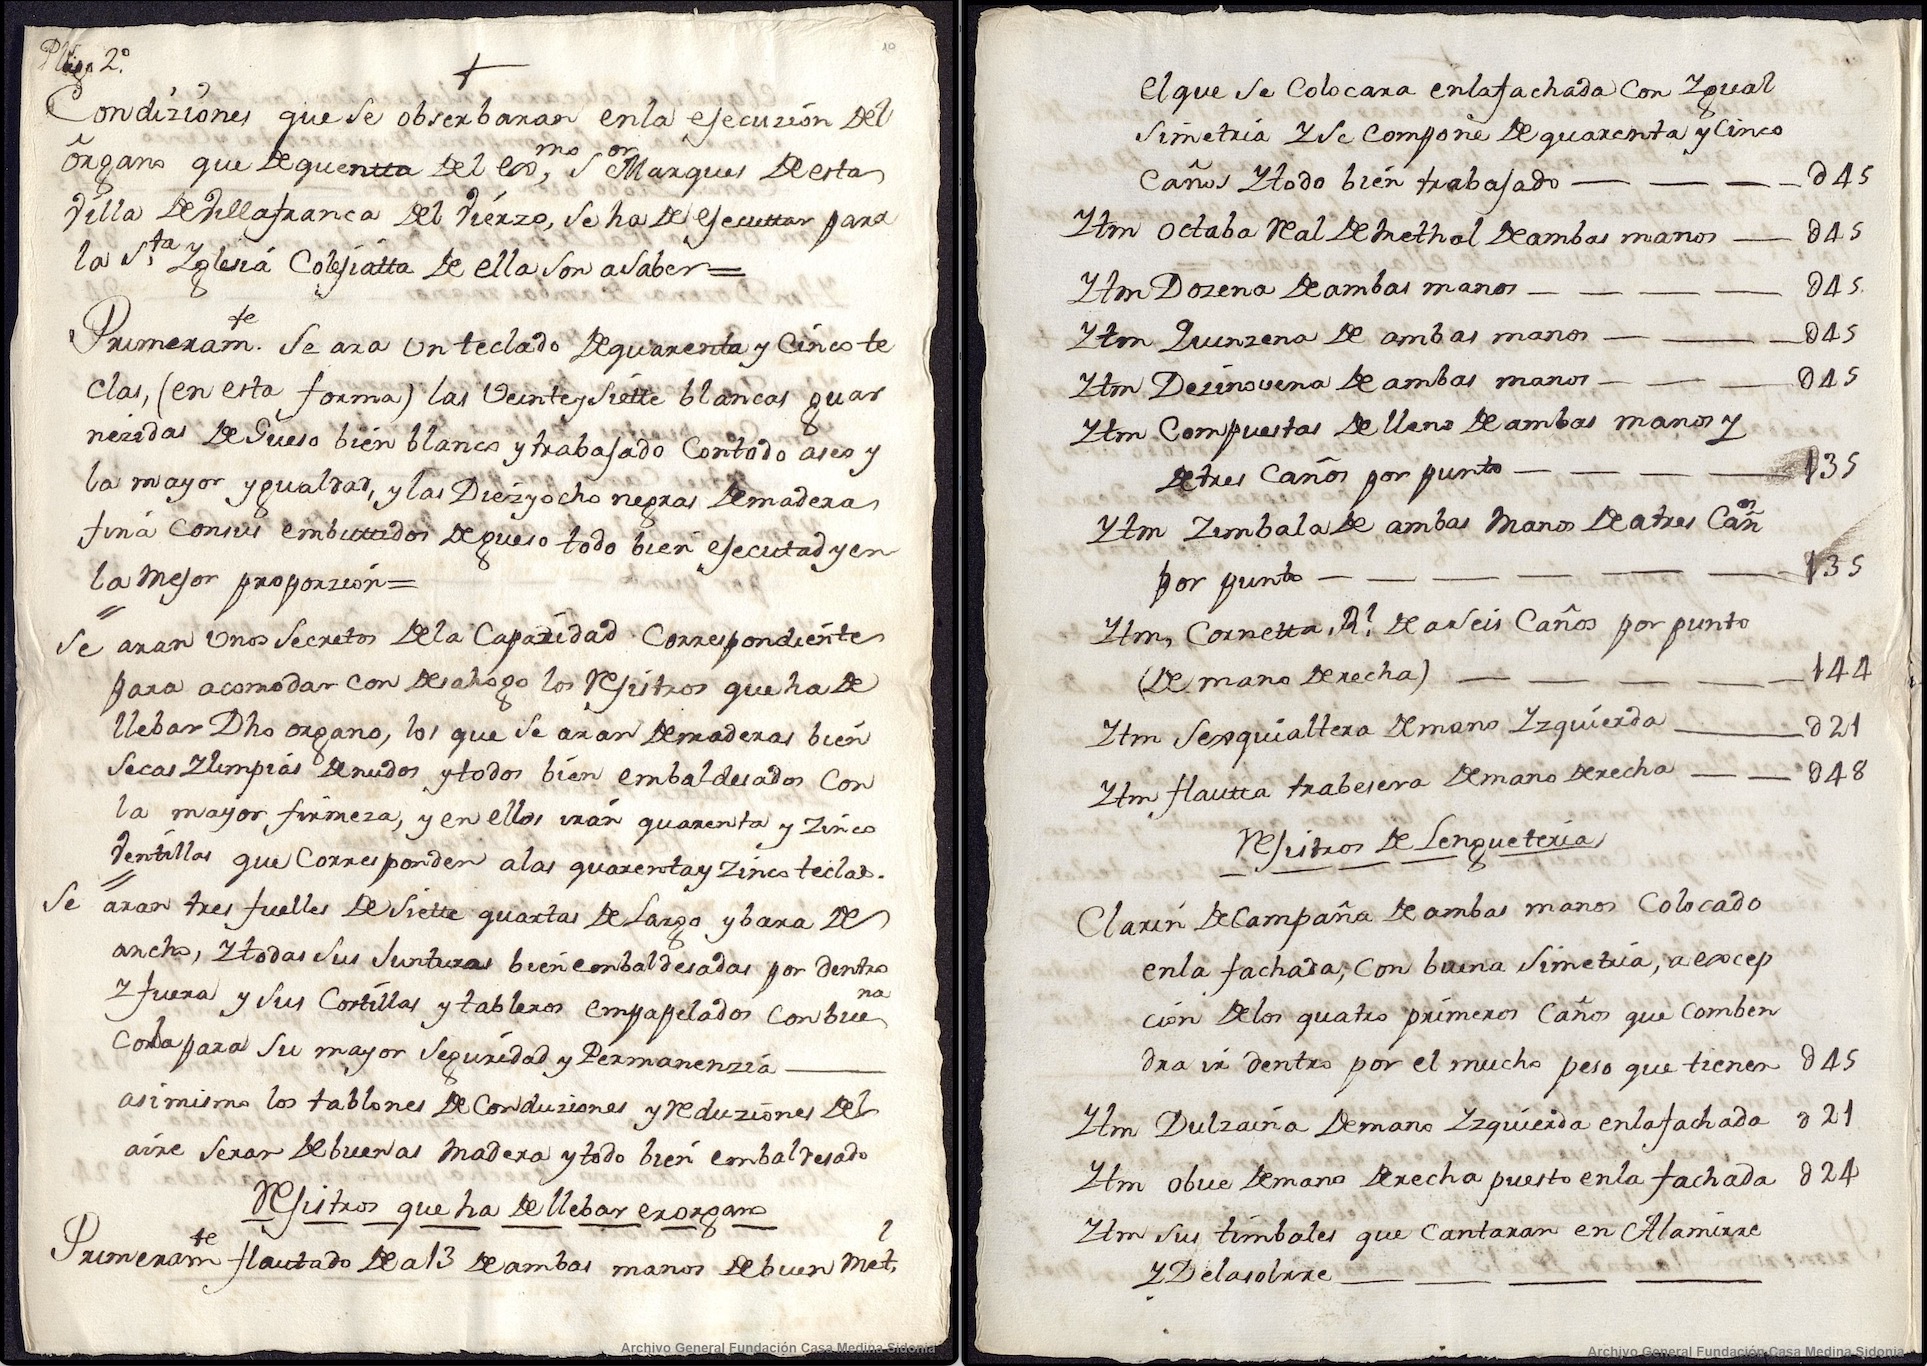 Pligo 2º.
10
Condiziones que se obserbaran en la ejecuzión del
órgano que de quentta del exmo, Sor Marques de esta
Villa de Villafranca del Vierzo, se ha de ejecuttar para
la Sta. Yglesia Colejiatta de ella son a saber=
Primeramte. se ara un teclado de quarenta y cinco te
clas, (en esta forma) las veinte y siette blancas guar
nezidas de Gueso bien blanco y trabajado con todo aseo y
la mayor ygualdad, y las Diez y ocho negras de madera
fina con sus embuttidos de gueso todo bien ejecutad y en
la mejor proporzión=
Se aran unos secretos de la Capazidad Correspondiente
para acomodar con desahogo los Rejistros que ha de
llebar Dho organo, los que se aran de maderas bien
secas Y limpias de nudos y todos bien embaldesados con
la mayor firmeza, y en ellos irán quarenta y zinco
Ventillas que Corresponden a las quarenta y zinco teclas.
Se aran tres fuelles de siette quartas de Largo y bara de
ancho, Y todas sus Junturas bien embaldesadas por dentro
Y fuera y sus Costillas y tableros empapelados con buena
Cola para su mayor seguridad y Permanenzia
asimismo los tablones de Conduziones y reduziones del
aire seran de buenas madera y todo bien embaldesado
Rejistros que ha de llebar er organo
Primeramte flautado de a 13 de ambas manos de buen Metl.
el que se Colocara en la fachada con Ygual
simetria Y se Compone de quarenta y Cinco
Caños Y todo bien trabajado — — — — 045
Ytm octaba Real de methal de ambas manos — 045
Ytm Dozena de ambas manos — — — — 045.
Ytm Quinzena de ambas manos — — — 045
Ytm Dezinovena de ambas manos — — — 045
Ytm Compuestas de lleno de ambas manos Y
de tres Caños por punto — — — — 135
Ytm Zimbala de ambas manos de a tres Caños
por punto — — — — — — — 135
Ytm, Cornetta, Rl. de a seis Caños por punto
(de mano derecha) — — — — — 144
Ytm sexquialtera de mano Yzquierda — 021
Ytm flautta trabesera de mano derecha — — 048
Rejistros de Lengueteria
Clarin de Campaña de ambas manos Colocado
en la fachada, con buena simetria, a excep
ción de los quatro primeros Caños que comben
dra ir dentro por el mucho peso que tienen 045
Ytm Dulzaina de mano Yzquierda en la fachada 021
Ytm obue de mano derecha puesto en la fachada 024
Ytm sus timbales que cantaran en Alamirre
Y Delasolrre — — — —
Archivo General Fundación Casa Medina Sidonia
Archivo General Fundación Casa Medina Sidonia